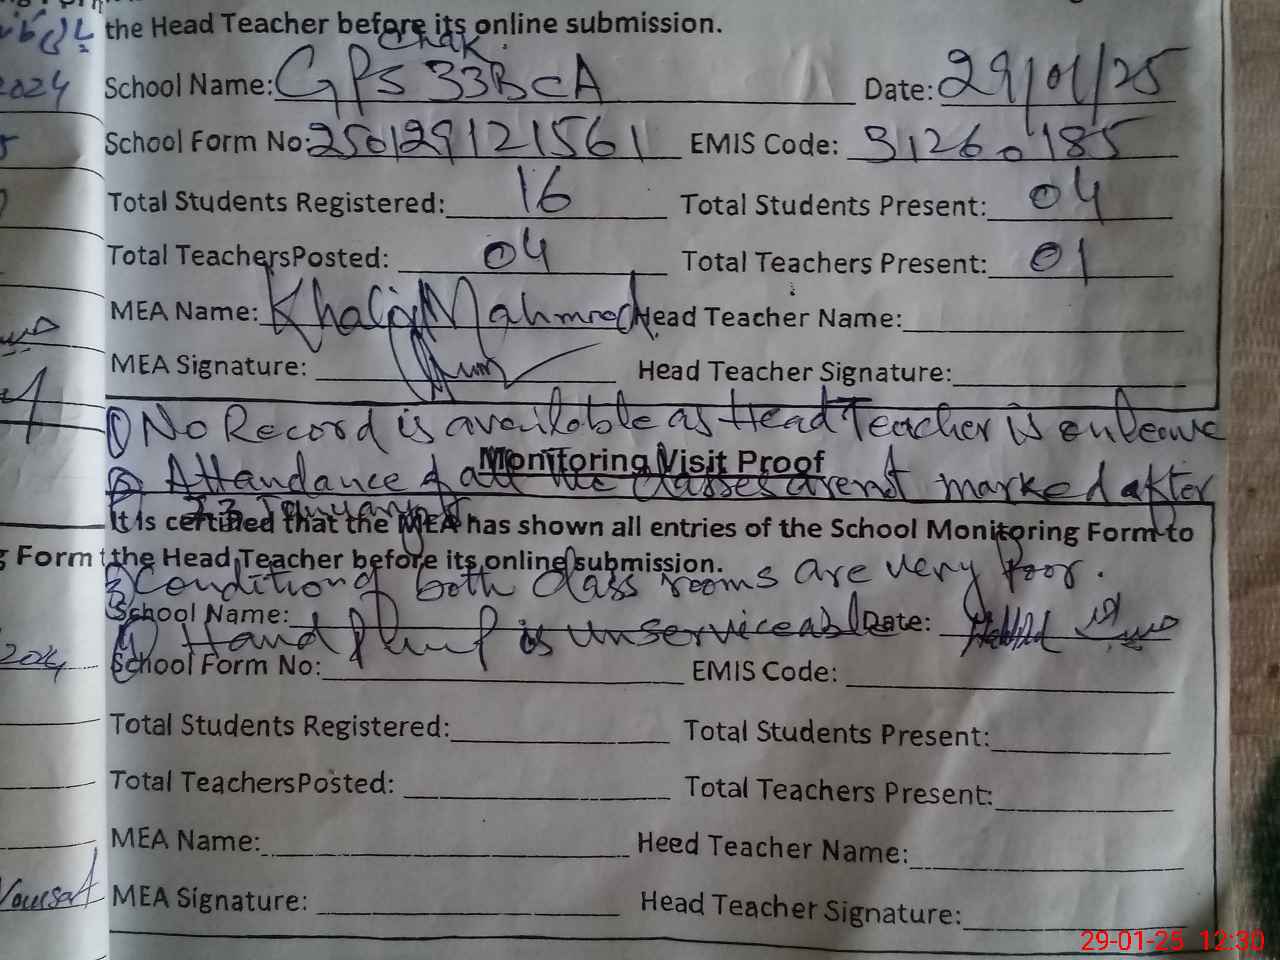 the Head Teacher before its online submission.
Chak
School Name: GPS 33BCA Date: 29/01/25
School Form No: 250129121561 EMIS Code: 31260185
Total Students Registered: 16 Total Students Present: 04
Total TeachersPosted: 04 Total Teachers Present: 01
MEA Name: Khalid Mahmood Head Teacher Name:
MEA Signature: Head Teacher Signature:
① No Record is available as Head Teacher is on leave
Monitoring Visit Proof
② Attandance of all the classes are not marked after
23 January
It is certified that the MEA has shown all entries of the School Monitoring Form to
g Form t the Head Teacher before its online submission.
③ Condition of both Class rooms are very Poor.
School Name: Date:
④ Hand Pump is unserviceable
2024 School Form No: EMIS Code:
Total Students Registered: Total Students Present:
Total TeachersPosted: Total Teachers Present:
MEA Name: Heed Teacher Name:
MEA Signature: Head Teacher Signature:
29-01-25 12:30